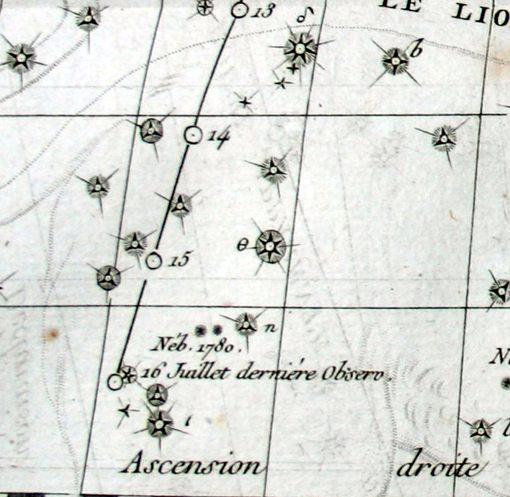 LE LIO
13
δ
b
14
θ
15
n
Néb. 1780.
16 Juillet derniére Observ.
N
ι
l
Ascension droite